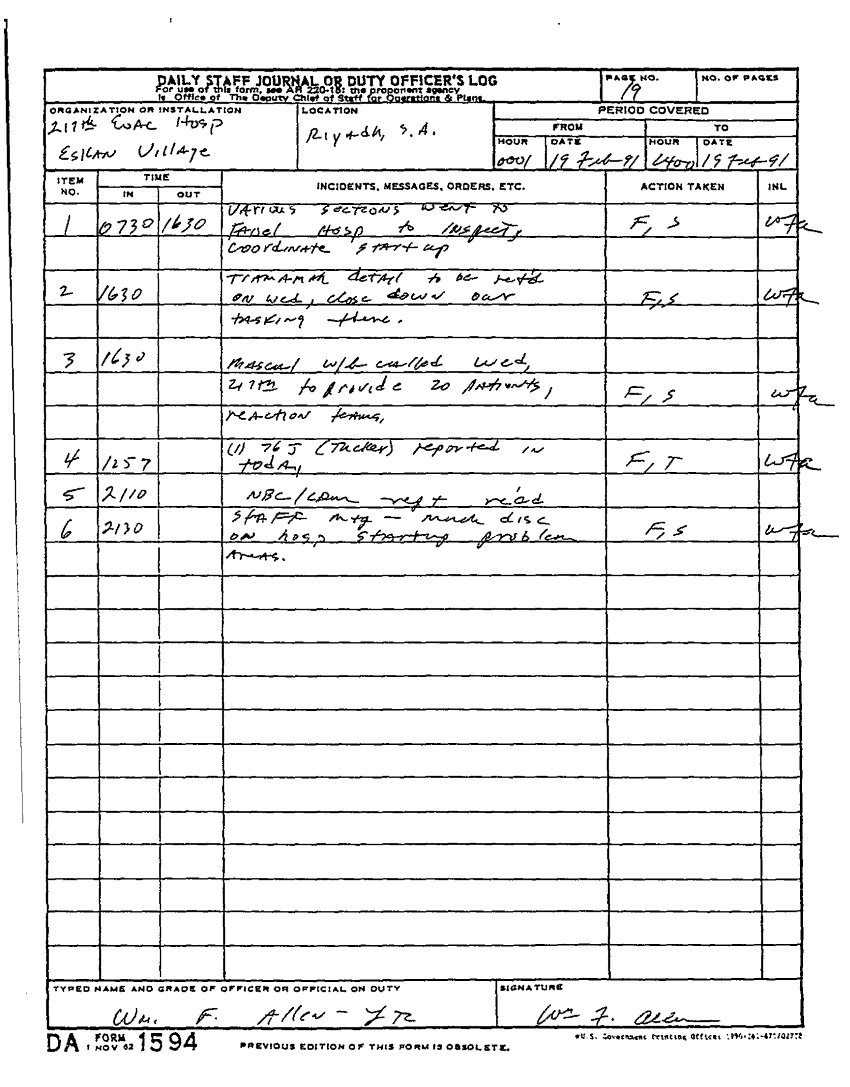 DAILY STAFF JOURNAL OR DUTY OFFICER'S LOG
For use of this form, see AR 220-15: the proponent agency
is Office of The Deputy Chief of Staff for Operations & Plans.
PAGE NO.
19
NO. OF PAGES
ORGANIZATION OR INSTALLATION
217th EVAC HOSP
ESKAN Village
LOCATION
Riyadh, S.A.
PERIOD COVERED
FROM
TO
HOUR
DATE
HOUR
DATE
0001
19 Feb 91
2400
19 Feb 91
ITEM NO.
TIME
IN
OUT
INCIDENTS, MESSAGES, ORDERS, ETC.
ACTION TAKEN
INL
1 0730 1630 VARIOUS SECTIONS WENT TO
Hosp to INSPECT, F, S wfa
COORDINATE START up
detail to be
2 1630 ON wed, close down our F, S wfa
TASKING there.
3 1630 MASCAL w/b called Wed,
217th to provide 20 patients, F, S wfa
reaction teams,
(1) 76J (Tucker) reported in
4 1257 today, F, T wfa
5 2110 NBC/ rept
STAFF mtg - much disc
6 2130 on hosp startup problem F, S wfa
Areas.
TYPED NAME AND GRADE OF OFFICER OR OFFICIAL ON DUTY
SIGNATURE
Wm. F. Allen
Wm F. Allen
DA FORM 1 NOV 62 1594
PREVIOUS EDITION OF THIS FORM IS OBSOLETE.
U.S. Government Printing Office: